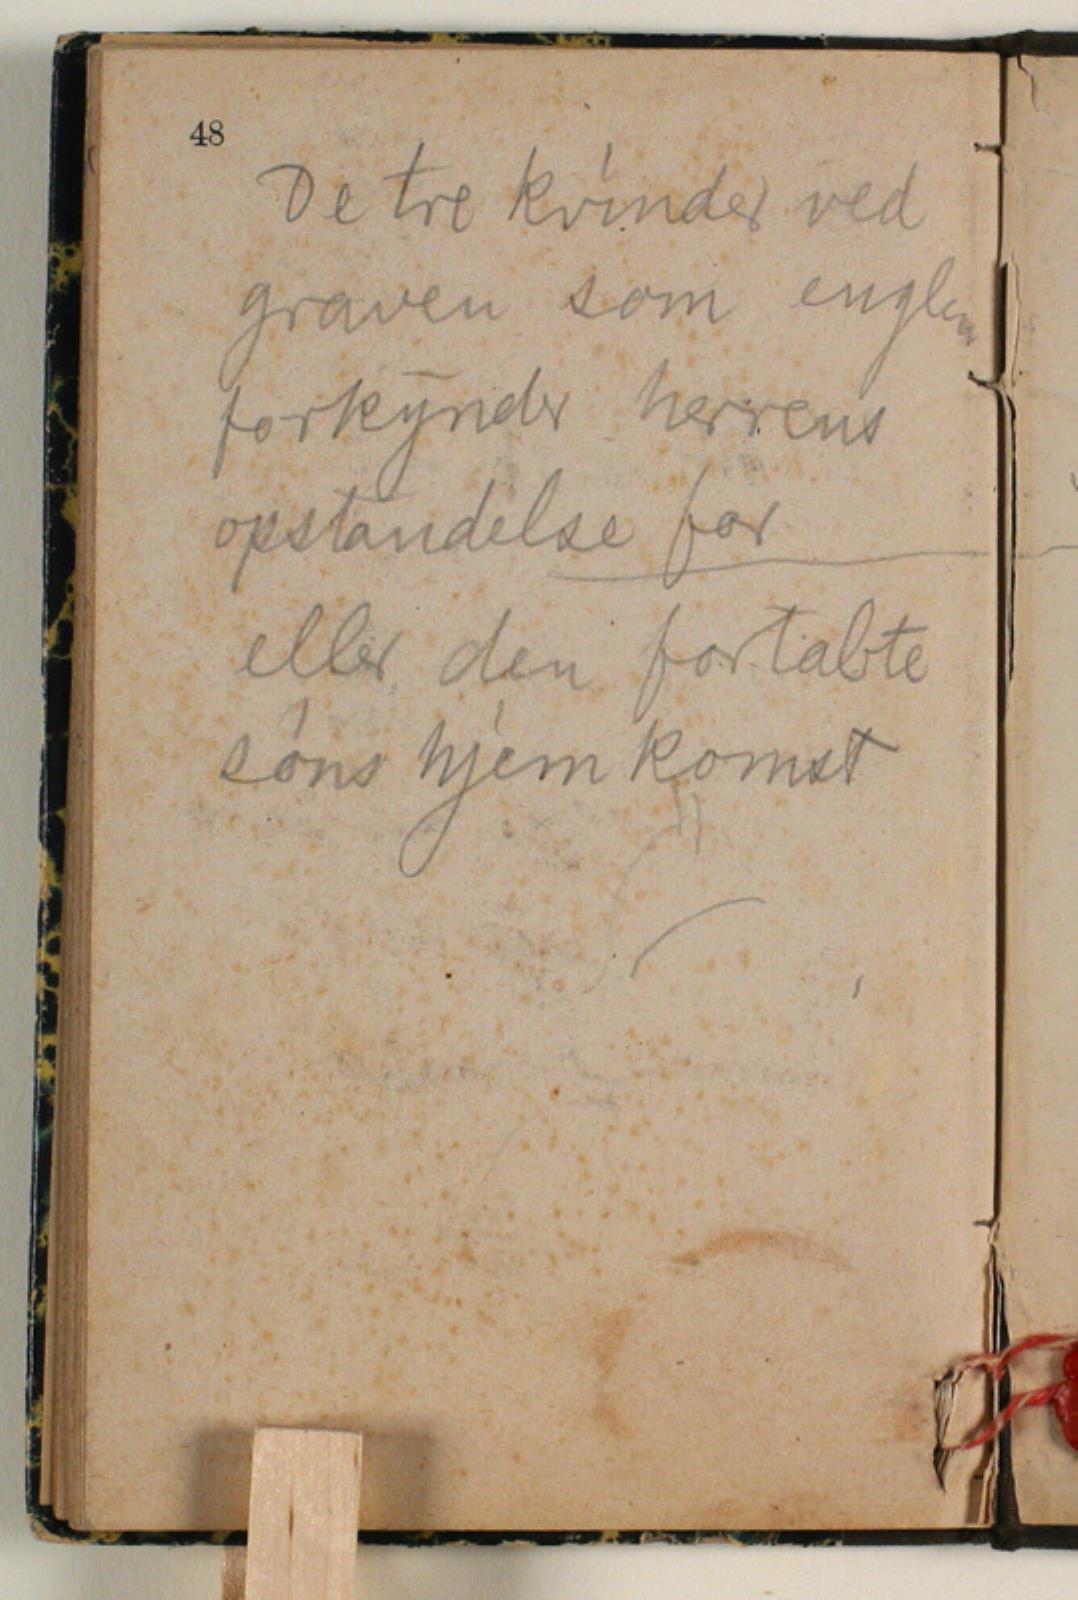 48
De tre kvinder ved
graven som englen
forkynder herrens
opstandelse for
eller den fortabte
söns hjemkomst